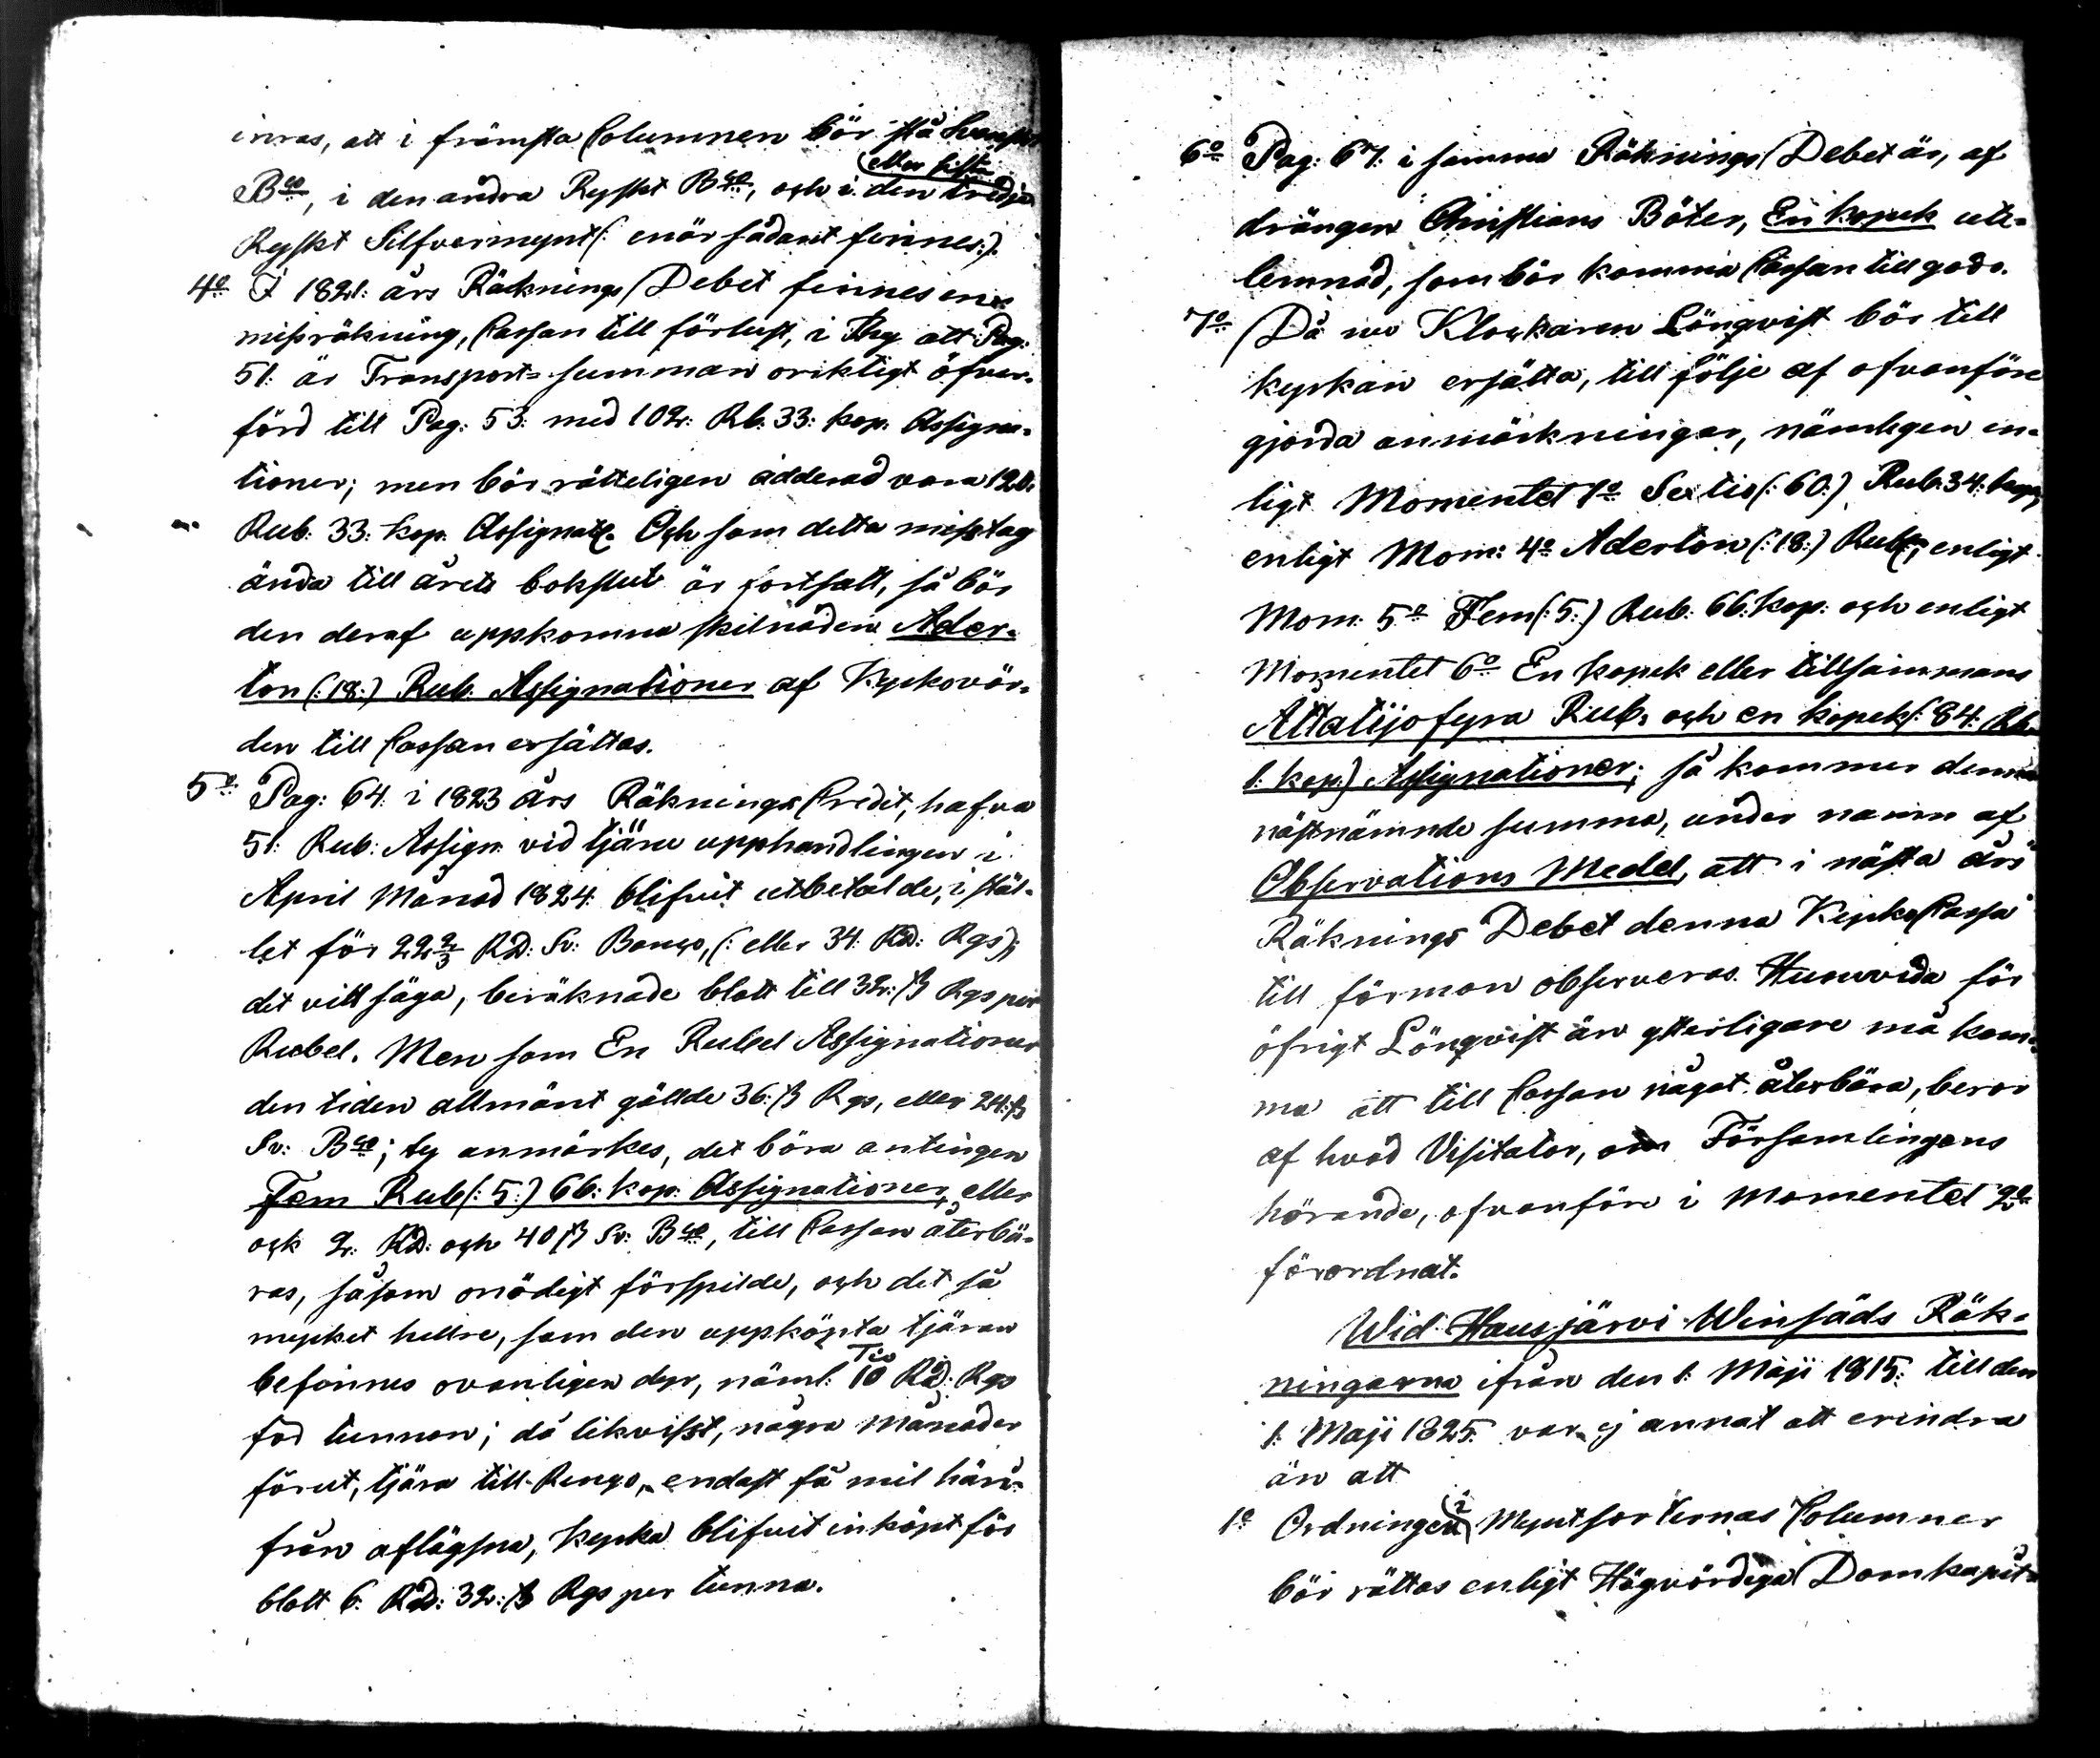 inras, att i främsta Columnen bör stå Svenskt
Bco, i den andra Ryskt Bco, och i den tredje
eller sista
Ryskt Silfvermynt (: enär sådant finnes:).
4o I 1821: års Räknings Debet finnes en
missräkning, Cassan till förlust, i thy att Pag:
51: är Transport-summan oriktigt öfver-
förd till Pag: 53: med 102: Rb. 33: kop. Assigna-
tioner; men bör rätteligen adderad vara 120:
Rub: 33: kop. Assignat:r Och som detta misstag
ända till årets bokslut är fortsatt, så bör
den deraf uppkomna skilnaden Ader-
ton (: 18:) Rub. Assignationer af Kyrkovär-
den till Cassan ersättas.
5o Pag: 64: i 1823 års Räknings Credit, hafva
51: Rub: Assign: vid tjäru upphandlingen i
April Månad 1824: blifvit utbetalde, i stäl-
let för 22 2/3 RD: Sv: Banco, (: eller 34: RD: Rgs);
det vill säga, beräknade blott till 32: ß Rgs per
Rubel. Men som En Rubel Assignationer
den tiden allmänt gällde 36: ß Rgs, eller 24: ß
Sv: Bco; ty anmärkes, det böra antingen
Fem Rub (: 5:) 66: kop: Assignationer, eller
ock 2: RD: och 40 ß Sv: Bco, till Cassan återbä-
ras, såsom onödigt förspilde, och det så
mycket hellre, som den uppköpta tjäran
befinnes ovanligen dyr, näml: 10 RD: Rgs
Tio
för tunnan; då likvisst, några månader
förut, tjära till Rengo, endast få mil häri-
från aflägsna, Kyrka blifvit inköpt för
blott 6: RD: 32: ß Rgs per tunna.
6o Pag: 67: i samma Räknings Debet är, af
drängen Christians Böter, En kopek ute-
lemnad, som bör komma Cassan till godo.
7o Då nu Klockaren Lönqvist bör till
kyrkan ersätta, till följe af ofvanföre
gjorda anmärkningar, nämligen en-
ligt Momentet 1o Sextio (: 60:) Rub. 34: kop,
enligt Mom: 4o Aderton (: 18:) Rub:r, enligt
Mom: 5o Fem (: 5:) Rub: 66: kop: och enligt
Momentet 6o En kopek eller tillsammans
Åttatijofyra Rub. och en kopek (: 84: Rb.
1: kop.) Assignationer; så kommer denna
nästnämnde summa, under namn af
Observations Medel, att i nästa års
Räknings Debet denna Kyrko Cassa
till förmon observeras. Huruvida för
öfrigt Lönqvist än ytterligare må kom-
ma att till Cassan något återbära, beror
af hvad Visitator, om Församlingens
hörande, ofvanföre i Momentet 2o
förordnat.
Wid Hausjärvi Winsäds Räk-
ningarna ifrån den 1: Maji 1815: till den
1: Maji 1825: var ej annat att erindra
än att
1o Ordningen i Myntsorternas Columner
bör rättas enligt Högvördiga Domkapit-